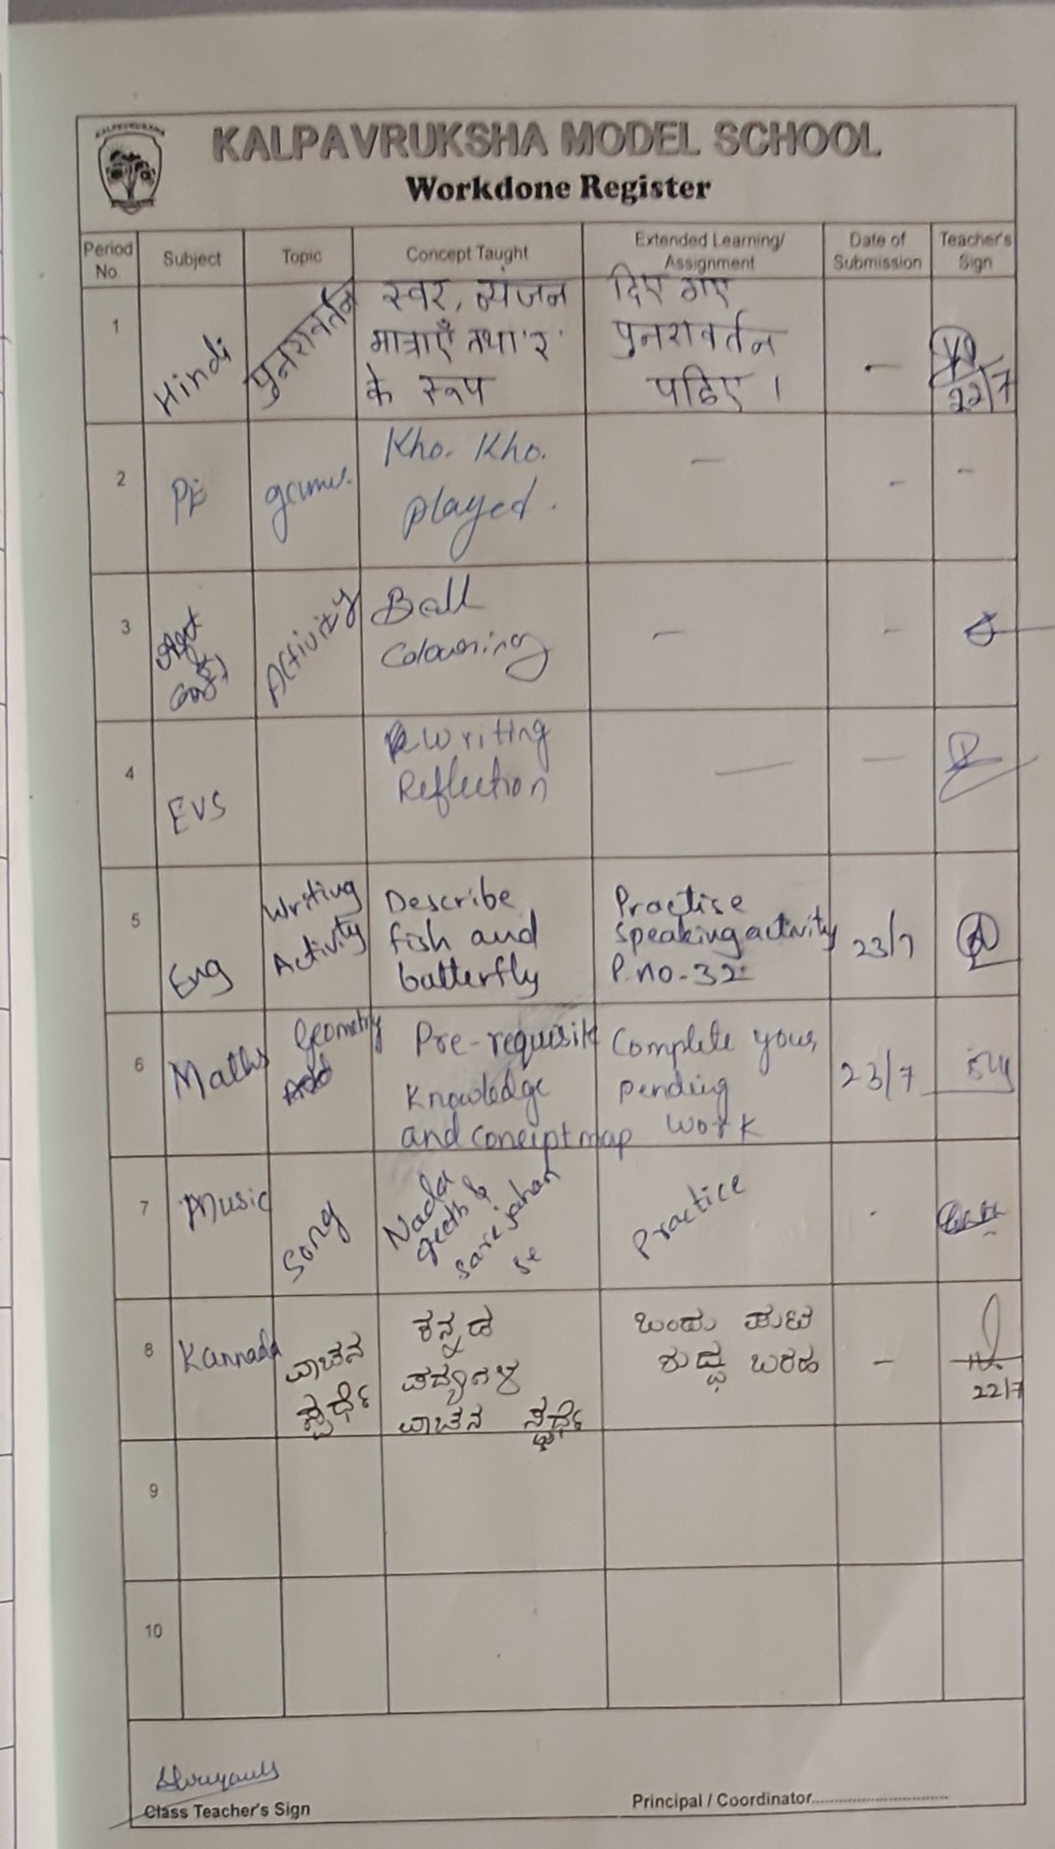 KALPAVRUKSHA
KALPAVRUKSHA MODEL SCHOOL
Workdone Register
Period No. Subject Topic Concept Taught Extended Learning/ Assignment Date of Submission Teacher's Sign
1 Hindi पुनरावर्तन स्वर, व्यंजन दिए गए
मात्राएँ तथा 'र' पुनरावर्तन —
के रूप पढिए । 22/7
2 PE Kho. Kho. — - -
played.
3 Activity Ball — -
Colouring
4 EVS Writing — —
Reflection
5 Eng Writing Describe Practise 23/7
Activity fish and speaking activity
butterfly P.no-32
6 Maths Geometry Pre-requisite Complete your 23/7
Knowledge pending
and concept map work
7 Music Song Nada Practice .
geeth &
sare jahan
se
8 Kannada ವಾಚನ ಕನ್ನಡ ಒಂದು ಪುಟ —
ಸ್ಪರ್ಧೆ ಪದ್ಯಗಳ ಶುದ್ಧ ಬರಹ 22/7
ವಾಚನ ಸ್ಪರ್ಧೆ
9
10
Class Teacher's Sign Principal / Coordinator..............................